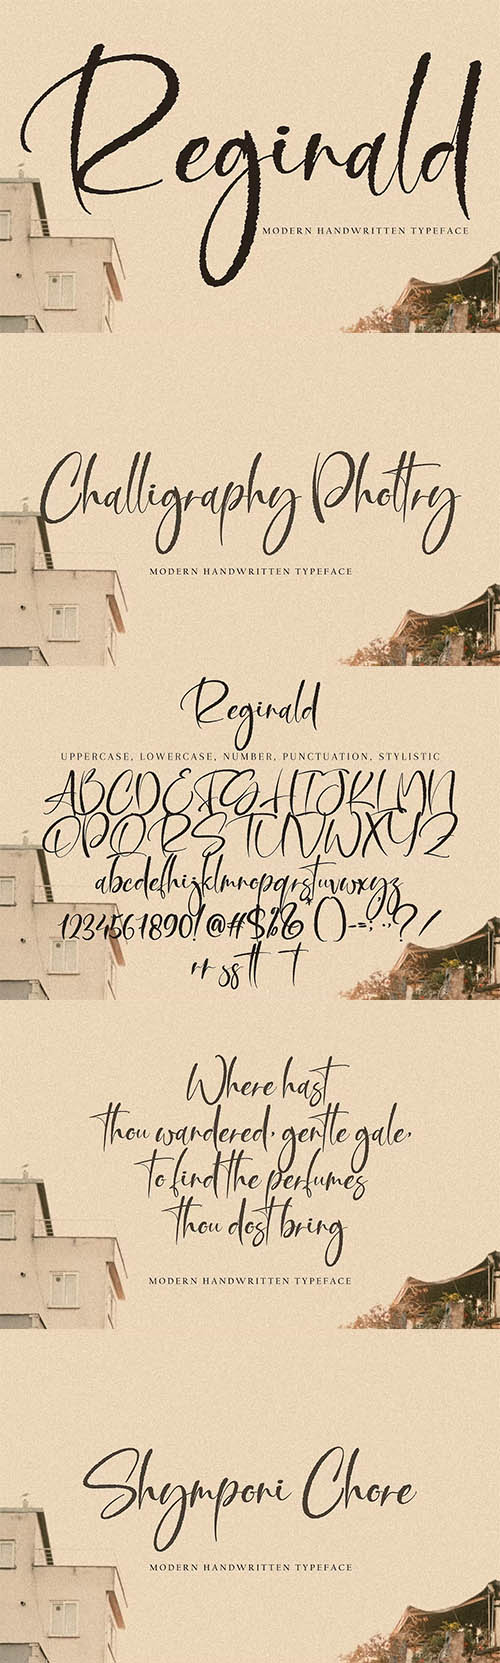 Reginald
MODERN HANDWRITTEN TYPEFACE
Challigraphy Pholtry
MODERN HANDWRITTEN TYPEFACE
Reginald
UPPERCASE, LOWERCASE, NUMBER, PUNCTUATION, STYLISTIC
ABCDEFGHIJKLMN
OPQRSTUVWXYZ
abcdefhijklmnopqrstuvwxyz
1234561890! @#$%& * () -=; .,? /
rr ss tt t
Where hast
thou wandered, gentle gale,
to find the perfumes
thou dost bring
MODERN HANDWRITTEN TYPEFACE
Shymponi Chore
MODERN HANDWRITTEN TYPEFACE